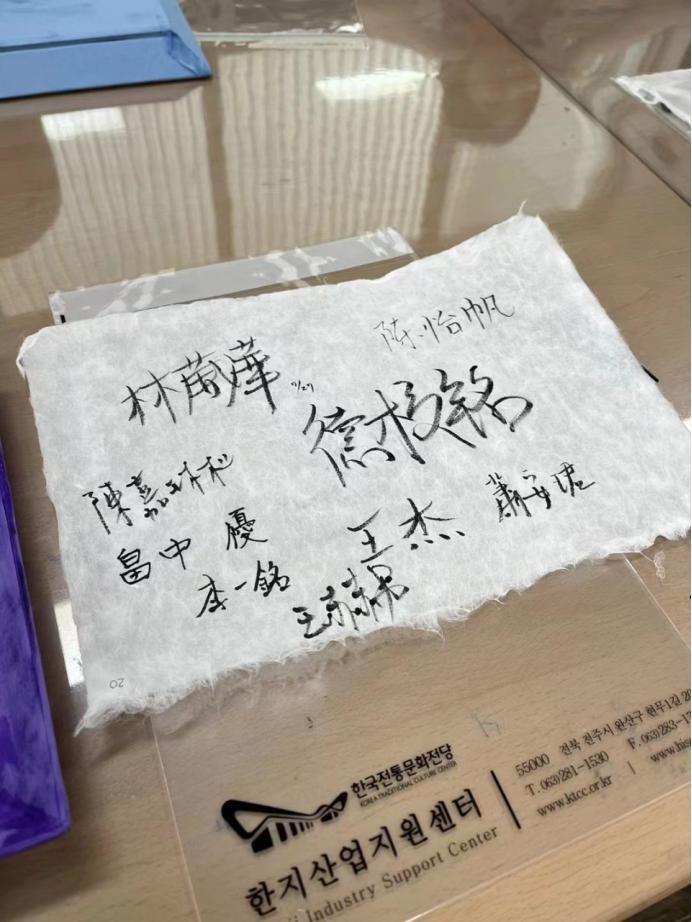 陈怡帆
林
11/27
铭
陳嘉
畠中 優
王杰
蕭安
李一銘
王
02
한국전통문화전당
KOREA TRADITIONAL CULTURE CENTER
한지산업지원센터
Industry Support Center
55000 전북 전주시 완산구 현무1길 20
T. 063)281-1530 F. 063)283-1
www.ktcc.or.kr | www.